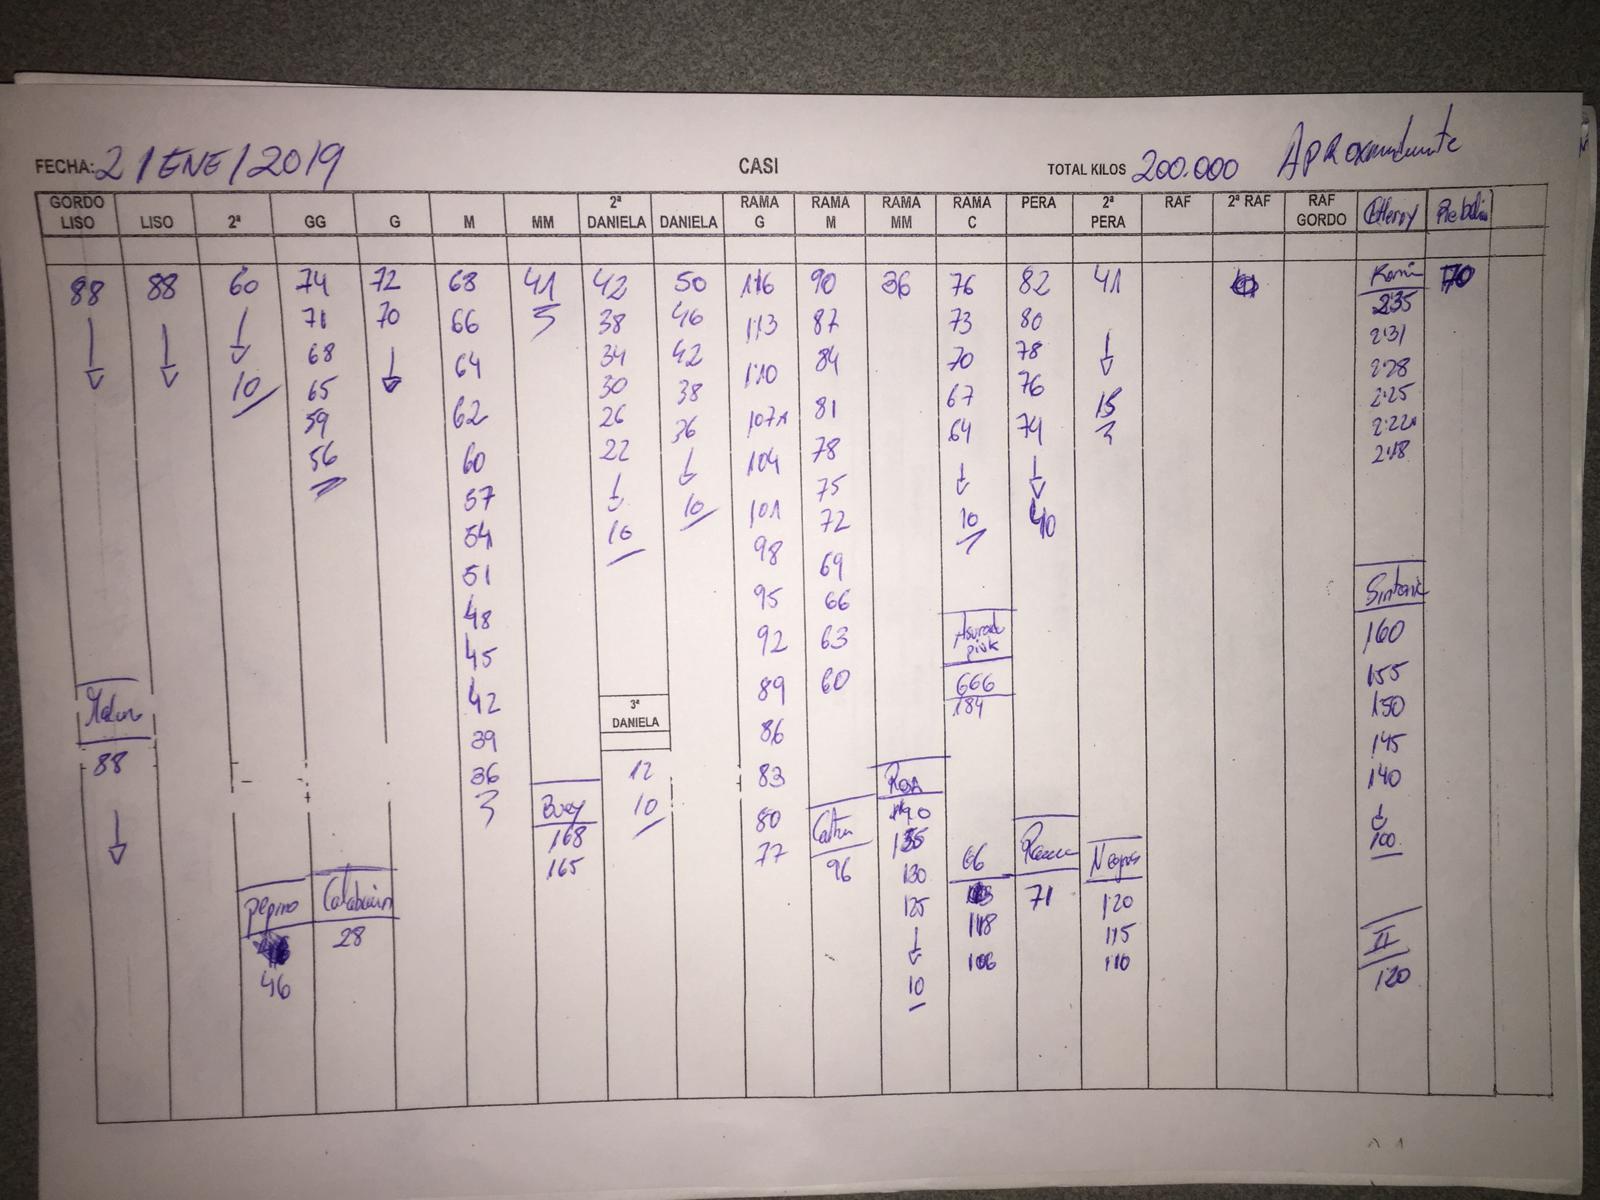 FECHA: 2/ENE/2019 CASI TOTAL KILOS 200.000
GORDO LISO
LISO
2ª
GG
G
M
MM
2ª DANIELA
DANIELA
RAMA G
RAMA M
RAMA MM
RAMA C
PERA
2ª PERA
RAF
2ª RAF
RAF GORDO
88 88 60 74 72 68 41 42 50 116 90 36 76 82 41 70
↓
↓
↓
10
71
68
65
59
56
70
↓
66
64
62
60
57
54
51
48
45
42
39
36
38
34
30
26
22
↓
10
3ª DANIELA
12
10
46
42
38
36
↓
10
113
110
107
104
101
98
95
92
89
86
83
80
77
87
84
81
78
75
72
69
66
63
60
96
Rosa
135
130
125
↓
10
73
70
67
64
↓
10
pink
666
184
66
118
106
80
78
76
74
↓
40
71
↓
15
Negros
120
115
110
235
231
228
225
222
218
160
155
150
145
140
↓
100
II
120
88
↓
Pepino
46
Calabacin
28
168
165